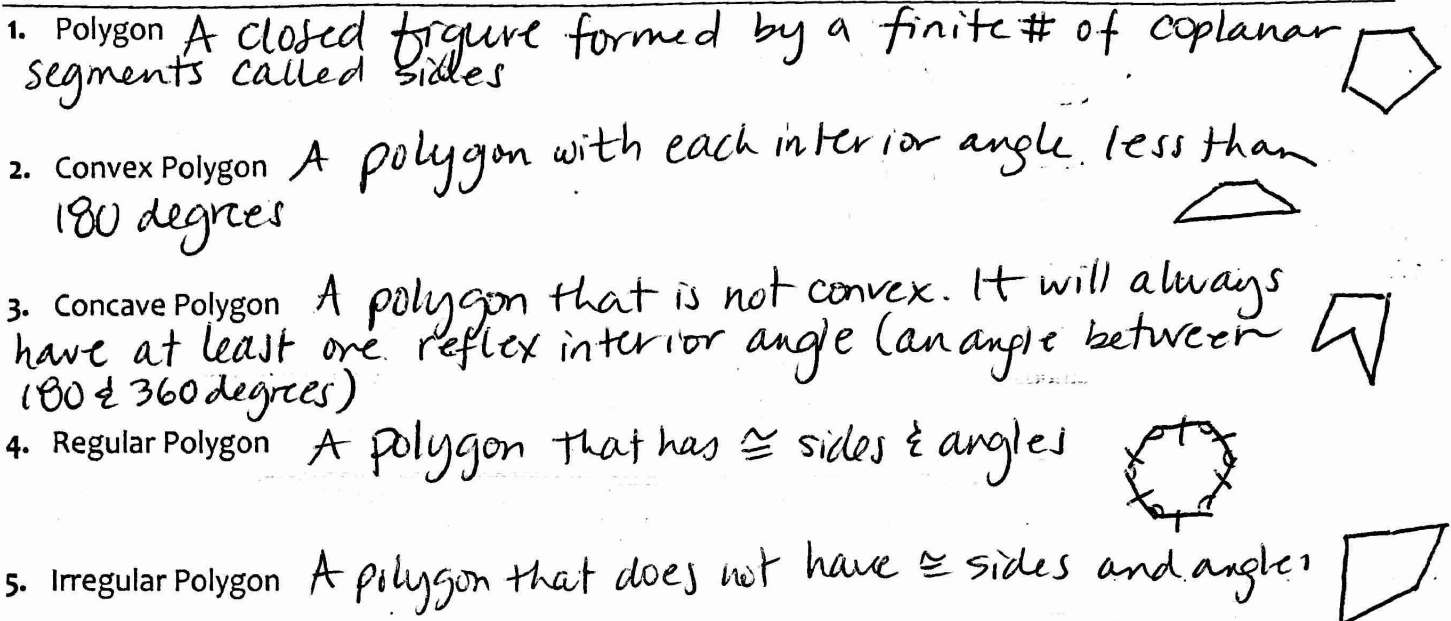 1. Polygon A closed figure formed by a finite # of coplanar
segments called sides
2. Convex Polygon A polygon with each interior angle less than
180 degrees
3. Concave Polygon A polygon that is not convex. It will always
have at least one reflex interior angle (an angle between
180 & 360 degrees)
4. Regular Polygon A polygon that has ≅ sides & angles
5. Irregular Polygon A polygon that does not have ≅ sides and angles